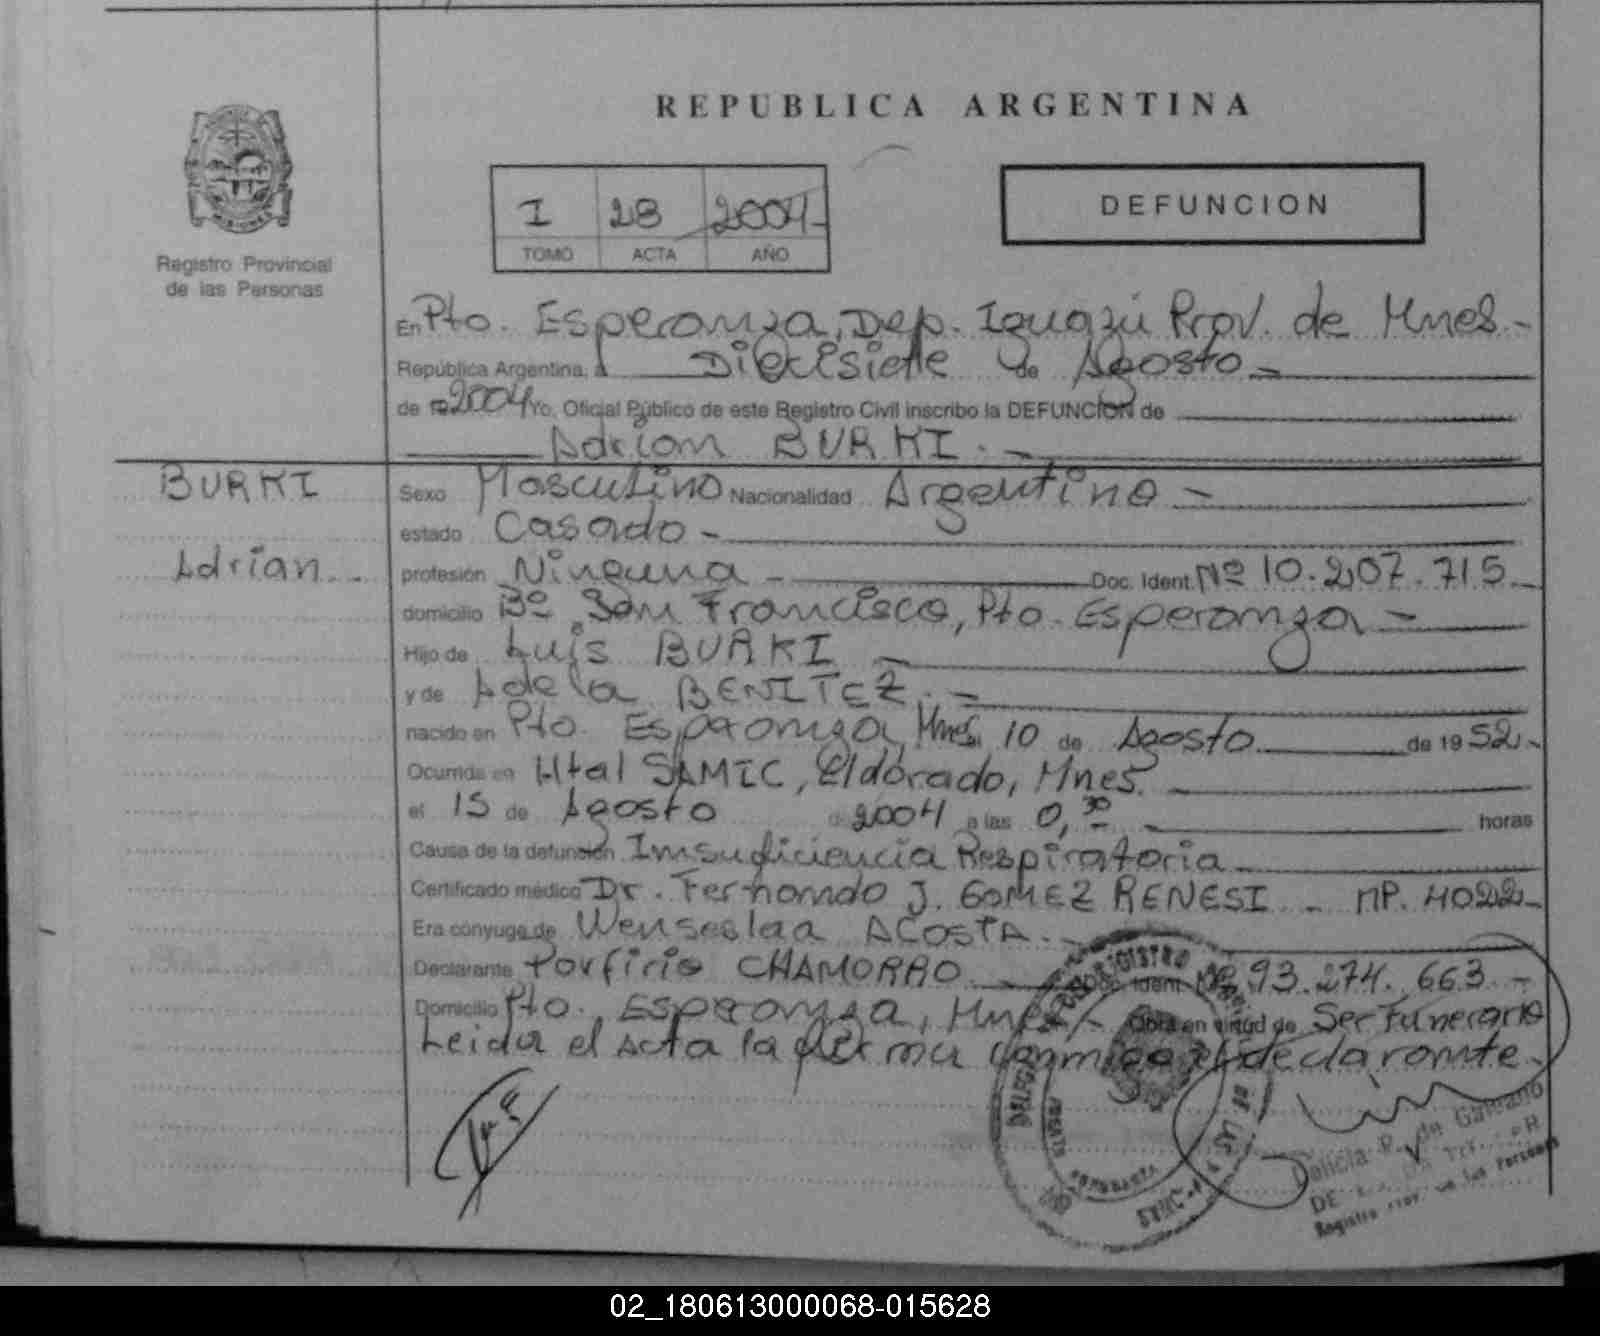 REPUBLICA ARGENTINA
I 28 2004-
TOMO ACTA AÑO
DEFUNCION
MISIONES
Registro Provincial
de las Personas
En Pto. Esperanza, Dep. Iguazú Prov. de Mnes.-
República Argentina, a Diecisiete de Agosto -
de 2004 Yo, Oficial Público de este Registro Civil inscribo la DEFUNCION de
Adrian BURKI. -
BURKI
Adrian. -
Sexo Masculino Nacionalidad Argentina -
estado Casado -
profesión Ninguna - Doc. Ident. Nº 10.207.715.-
domicilio Bº San Francisco, Pto. Esperanza -
Hijo de Luis BURKI -
y de Adela BENITEZ. -
nacido en Pto. Esperanza, Mnes. 10 de Agosto de 1952.-
Ocurrida en Htal SAMIC, Eldorado, Mnes.
el 15 de Agosto d 2004 a las 0,30 - horas
Causa de la defunción Insuficiencia Respiratoria -
Certificado médico Dr. Fernando J. GOMEZ RENESI - MP. 4022-
Era cónyuge de Wenseslaa ACOSTA. -
Declarante Porfirio CHAMORRO. Doc. Ident. Nº 93.274.663. -
Domicilio Pto. Esperanza, Mnes - Obra en virtud de Ser Funerario
Leida el acta la firma conmigo el declarante.
REGISTRO DE LAS
PUERTO ESPERANZA
de Galeano
Registro Prov. de las Personas
02_180613000068-015628